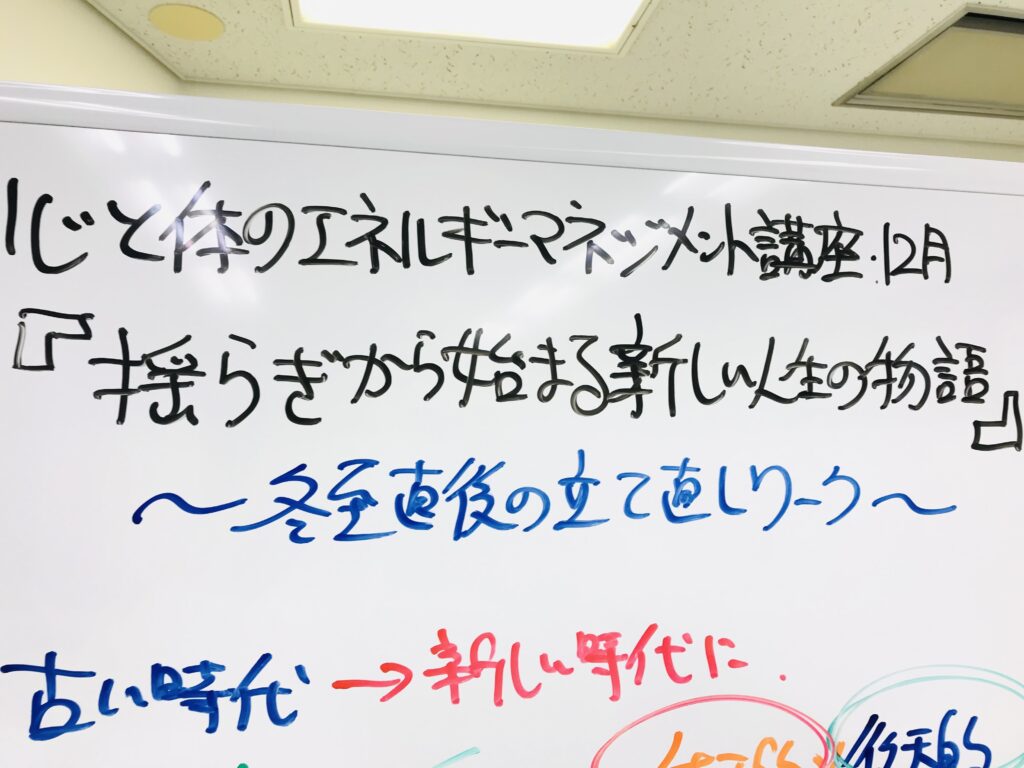 心と体のエネルギーマネジメント講座・12月
『揺らぎから始まる新しい人生の物語』
〜冬至直後の立て直しワーク〜
古い時代→新しい時代に.
後天的